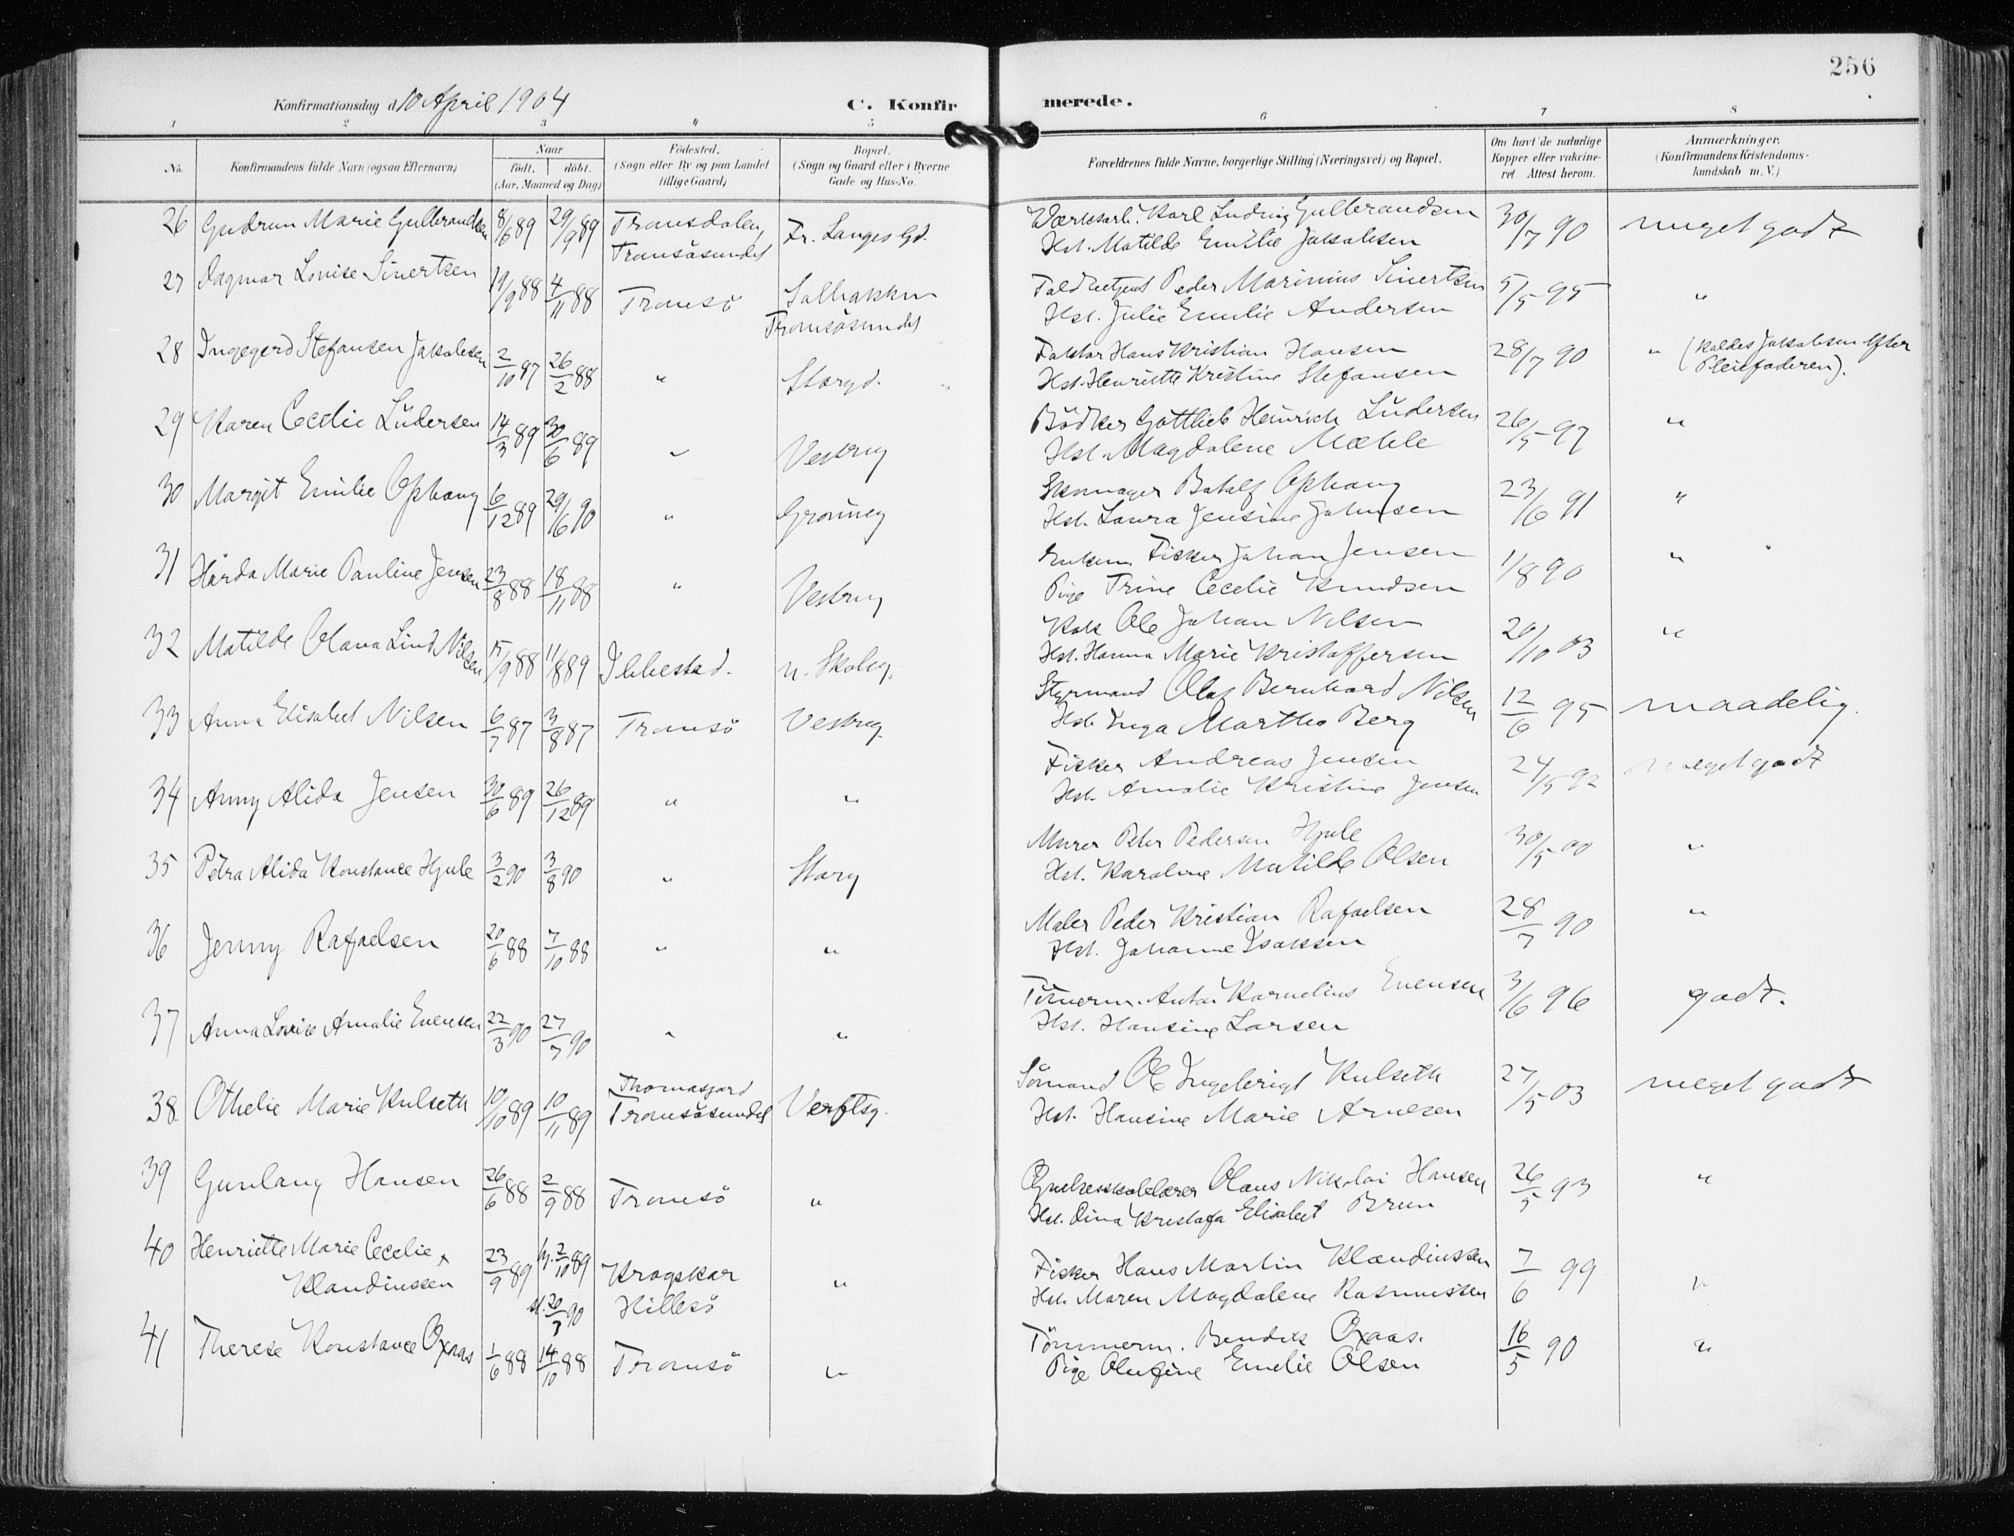 256
Konfirmationsdag d. 10 April 1904 C. Konfirmerede.
1 2 3 4 5 6 7 8
No. Konfirmandens fulde Navn (ogsaa Efternavn) Naar født. døbt. (Aar, Maaned og Dag) Fødested. (Sogn eller By og paa Landet tillige Gaard) Bopæl. (Sogn og Gaard eller i Byerne Gade og Hus-No. Forældrenes fulde Navne, borgerlige Stilling (Næringsvei) og Bopæl. Om havt de naturlige Kopper eller vakcineret. Attest herom. Anmærkninger. (Konfirmandens Kristendomskundskab m. V.)
26 Gudrun Marie Gulbrandsen 8/6 89 29/9 89 Tromsdalen Tromsøsundet Fr. Langes Gd. Karl Ludvig Gulbrandsen 30/7 90 meget godt
Hst. Matilde Emilie Jakobsen
27 Dagmar Lovise Sivertsen 19/9 88 4/11 88 Tromsö Tromsøsundet Peder Marinius Sivertsen 5/5 95 "
Hst. Julie Emilie Andersen
28 Ingegerd Stefansen Jakobsen 2/10 87 26/2 88 " Storgd. Faktor Hans Kristian Hansen 28/7 90 " (kaldes Jakobsen efter Pleiefaderen).
Hst. Henriette Kristine Stefansen
29 Karen Cecelie Lüdersen 14/3 89 30/6 89 " Vestreg Bödker Gottlieb Heinrich Lüdersen 26/5 97 "
Hst. Magdalene Mæhle
30 Margit Emilie Ophaug 6/12 89 29/6 90 " Grønneg Skomager Botolf Ophaug 23/6 91 "
Hst. Laura Jensine Johnsen
31 Marie Pauline Jensen 23/8 88 18/11 88 " Vestreg Enkem. Fisker Johan Jensen 1/8 90 "
Pige Trine Cecelie Knudsen
32 Matilde Olava Lind Nilsen 15/9 88 11/8 89 Ibbestad. n. Skoleg. Kok Ole Johan Nilsen 20/10 03 "
Hst. Hanna Marie Kristoffersen
33 Anna Elisabet Nilsen 6/7 87 3/8 87 Tromsö Vestreg. Styrmand Olaf Bernhard Nilsen 12/6 95 maadelig.
Hst. Inga Martha Berg
34 Anny Alida Jensen 30/6 89 26/12 89 " " Fisker Andreas Jensen 24/5 92 meget godt
Hst. Amalie Kristine Jensen
35 Petra Alida Konstance Hjule 3/2 90 3/8 90 " Storg Murer Peter Pedersen Hjule 30/5 00 "
Hst. Karoline Matilde Olsen
36 Jenny Rafaelsen 20/6 88 7/10 88 " " Maler Peder Kristian Rafaelsen 28/7 90 "
Hst. Johanne Isaksen
37 Anna Lovise Amalie Evensen 22/3 90 27/7 90 " " Tömerm. Anton Kornelius Evensen 3/6 96 godt.
Hst. Hansine Larsen
38 Othelie Marie Kulseth 10/10 89 10/11 89 Thomasjord Tromsösundet Verftsg. Sömand Ole Ingebrigt Kulseth 27/5 03 meget godt
Hst. Hansine Marie Arnesen
39 Gunlaug Hansen 26/6 88 2/9 88 Tromsö " Olaus Nikolai Hansen 26/5 93 "
Hst. Dina Kristofa Elisabet Brun
40 Henriette Marie Cecelie Klaudiussen 23/9 89 hj. 2/10 89 st. 20/7 90 Krogskar Hillesö " Fisker Hans Martin Klaudiussen 7/6 99 "
Hst. Maren Magdalene Rasmussen
41 Therese Konstance Oxaas 1/6 88 14/10 88 Tromsö " Tömmerm. Bendik Oxaas. 16/5 90 "
Pige Olufine Emelie Olsen